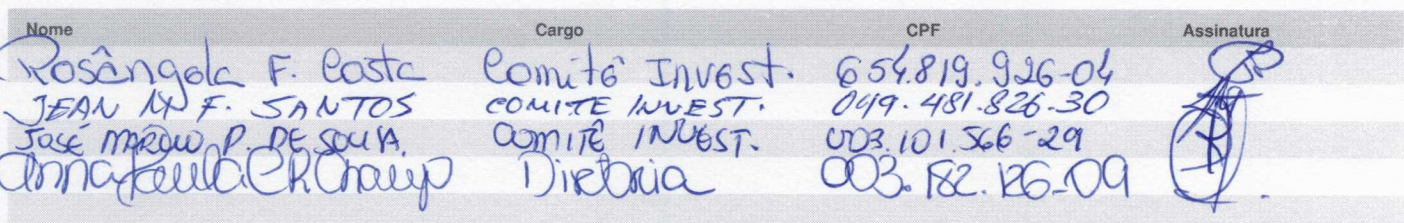 Nome Cargo CPF Assinatura
Rosângela F. Costa Comitê Invest. 654.819.926-04
JEAN M F. SANTOS COMITE INVEST. 049.481.826-30
JOSÉ MÁRCIO P. DE SOUSA. COMITÊ INVEST. 003.101.566-29
Anna Paula CR Araujo Diretoria 003.182.126-09